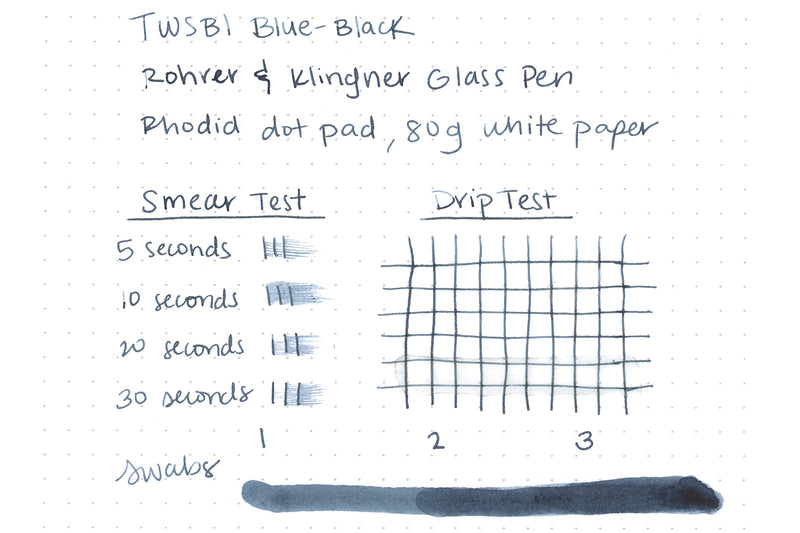 TWSBI Blue-Black
Rohrer & Klingner Glass Pen
Rhodid dot pad, 80g white paper
Smear Test
Drip Test
5 seconds
10 seconds
20 seconds
30 seconds
1 2 3
swabs